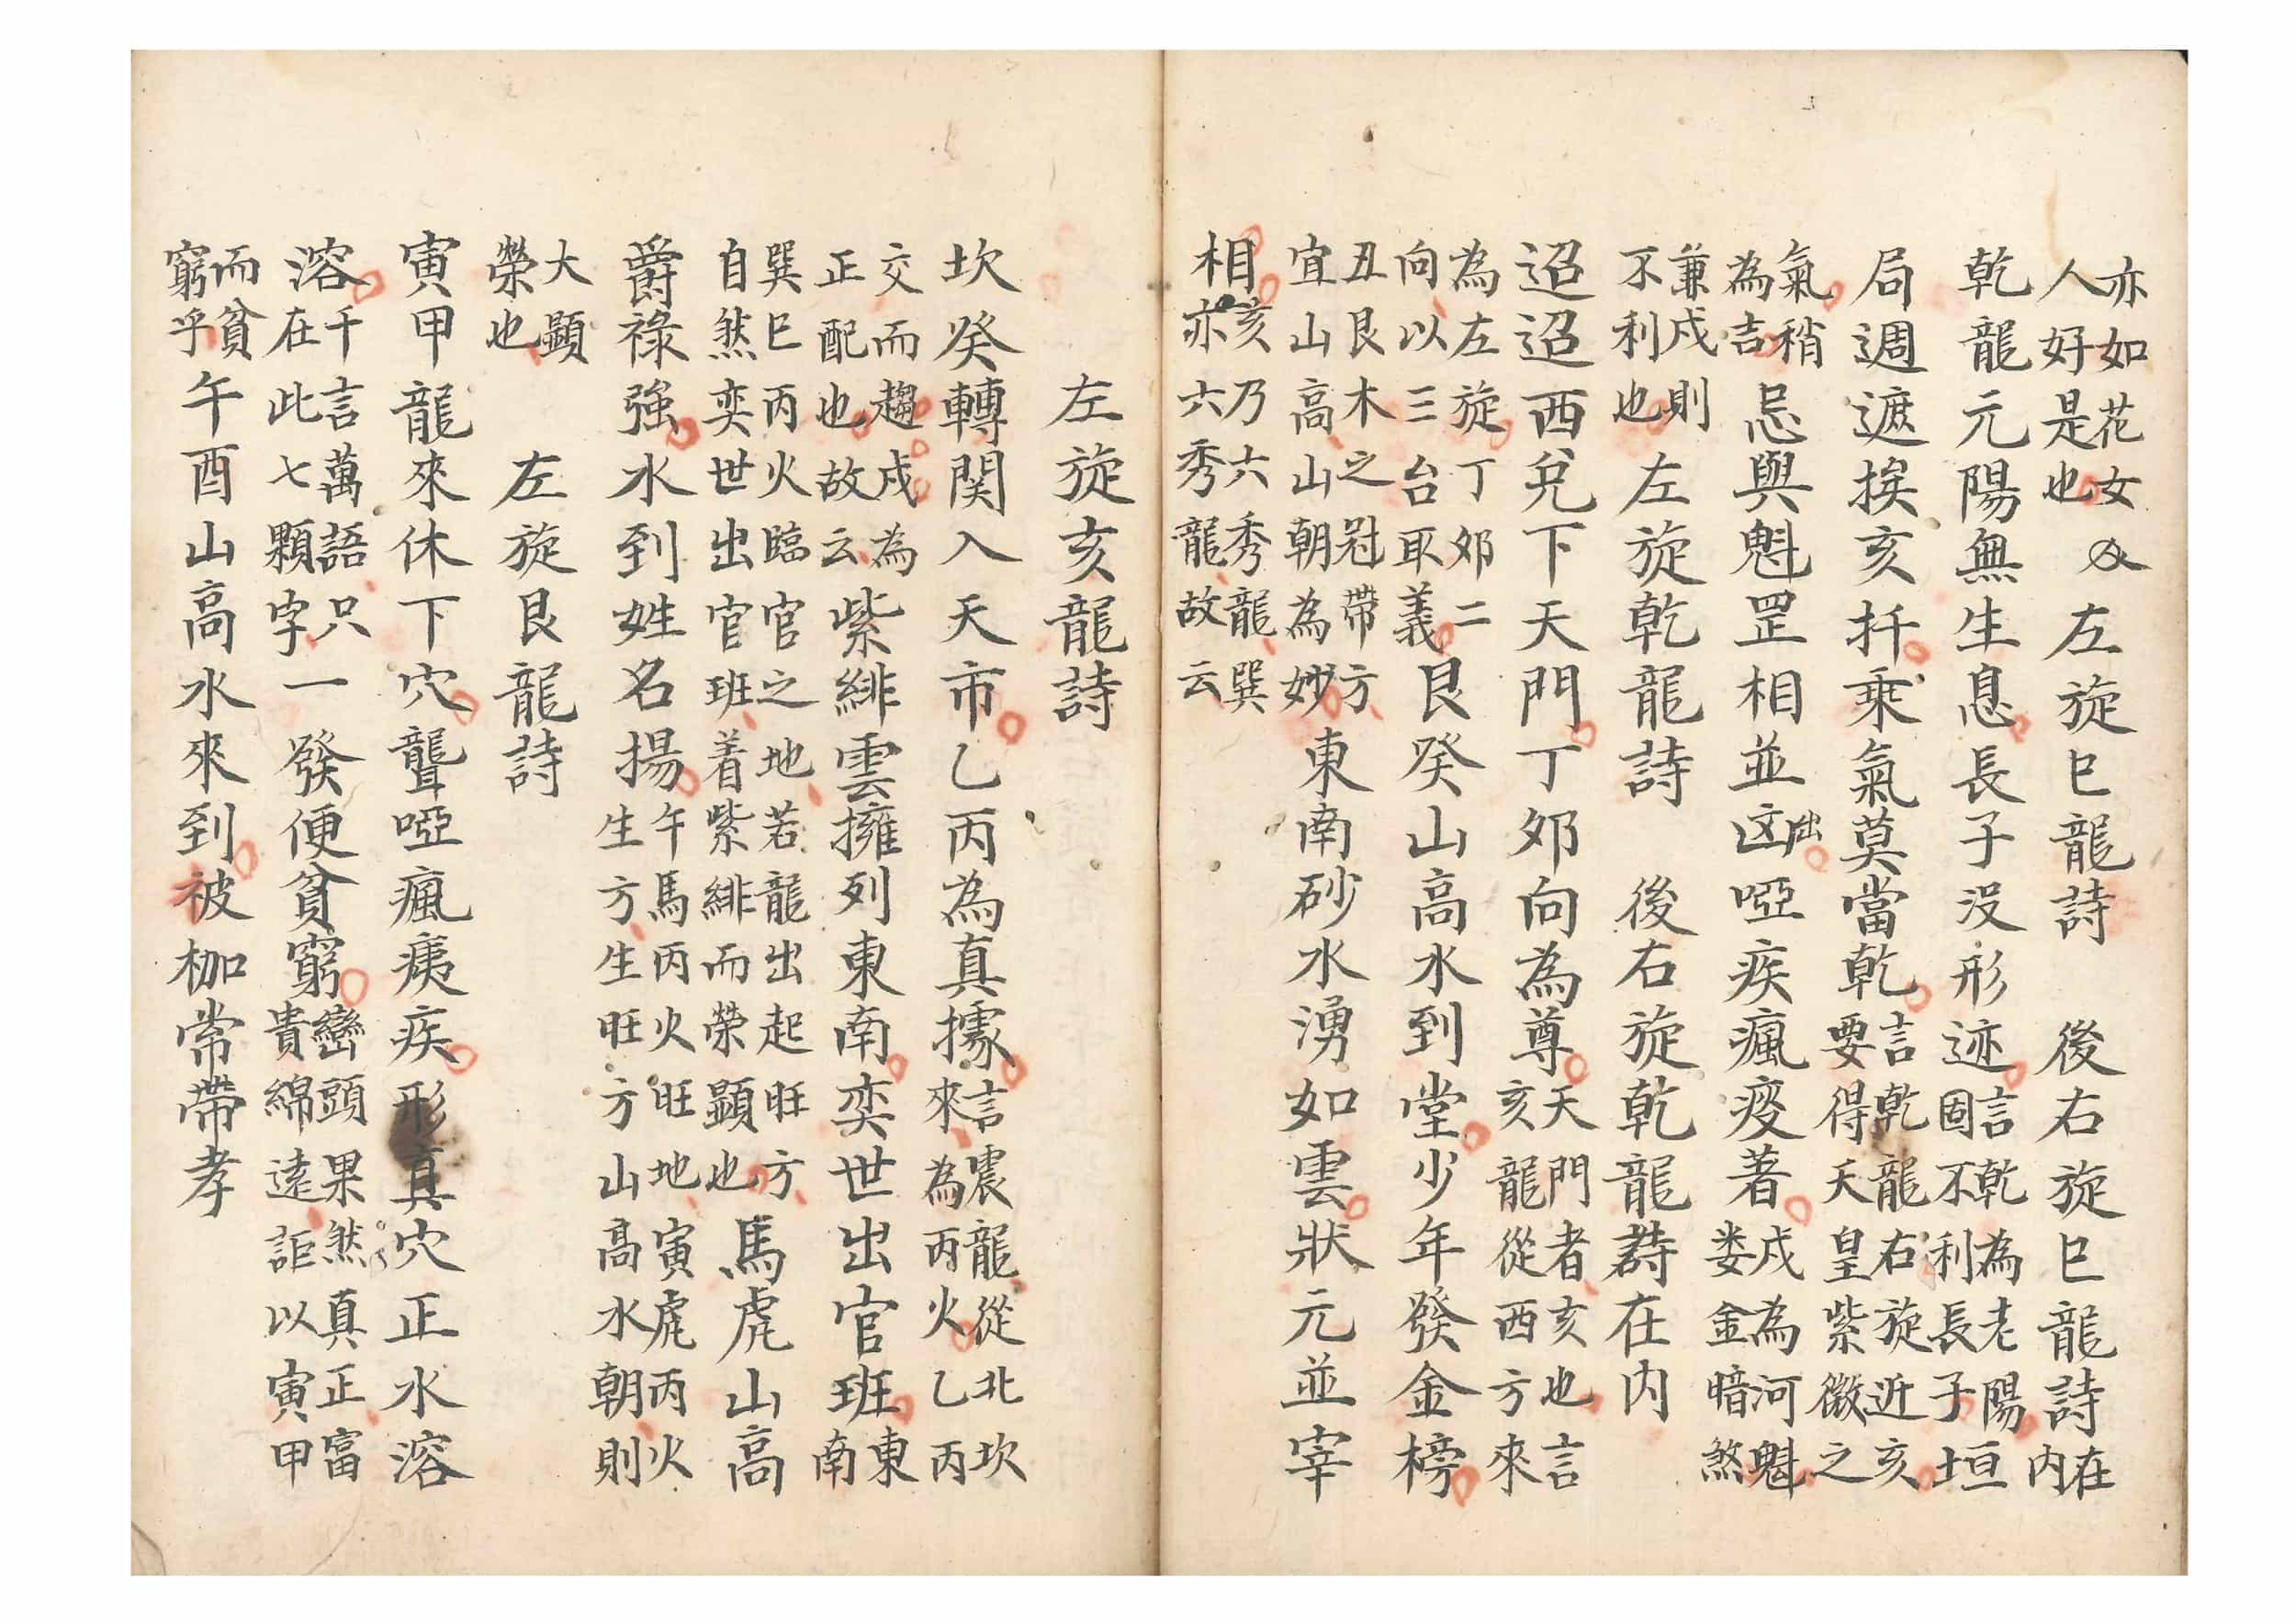 亦如花女人好是也 左旋巳龍詩 後右旋巳龍詩在内
乾龍元陽無生息長子没形迹言乾為老陽固不利長子垣
局週遮挨亥扦乘氣莫當乾言乾龍右旋近亥要得天皇紫微之
氣稍為吉忌與魁罡相並凶出啞疾瘋癈著戍為河魁娄金暗煞
兼戍則不利也左旋乾龍詩 後右旋乾龍詩在内
迢迢西兌下天門丁夘向為尊天門者亥也言亥龍從西方來
為左旋丁夘二向以三台取義艮癸山高水到堂少年發金榜
丑艮木之冠帶方宜山高山朝為妙東南砂水湧如雲狀元並宰
相亥乃六秀龍巽亦六秀龍故云
左旋亥龍詩
坎癸轉関入天市乙丙為真據言震龍從北坎來為丙火乙丙
交而趨戍為正配也故云紫緋雲擁列東南奕世出官班東南
巽巳丙火臨官之地若龍出起旺方自然奕世出官班着紫緋而榮顯也馬虎山高
爵祿強水到姓名揚午馬丙火旺地寅虎丙火生方生旺方山高水朝則
大顯榮也 左旋艮龍詩
寅甲龍來休下穴聾啞瘋痍疾形真穴正水溶
溶千言萬語只在此七顆字一發便貧窮巒頭果然真正富貴綿遠詎以寅甲
而貧窮乎午酉山高水來到被枷常帶孝